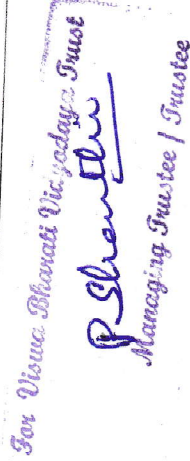 For Viswa Bharati Vidyodaya Trust
P Shanthi
Managing Trustee / Trustee